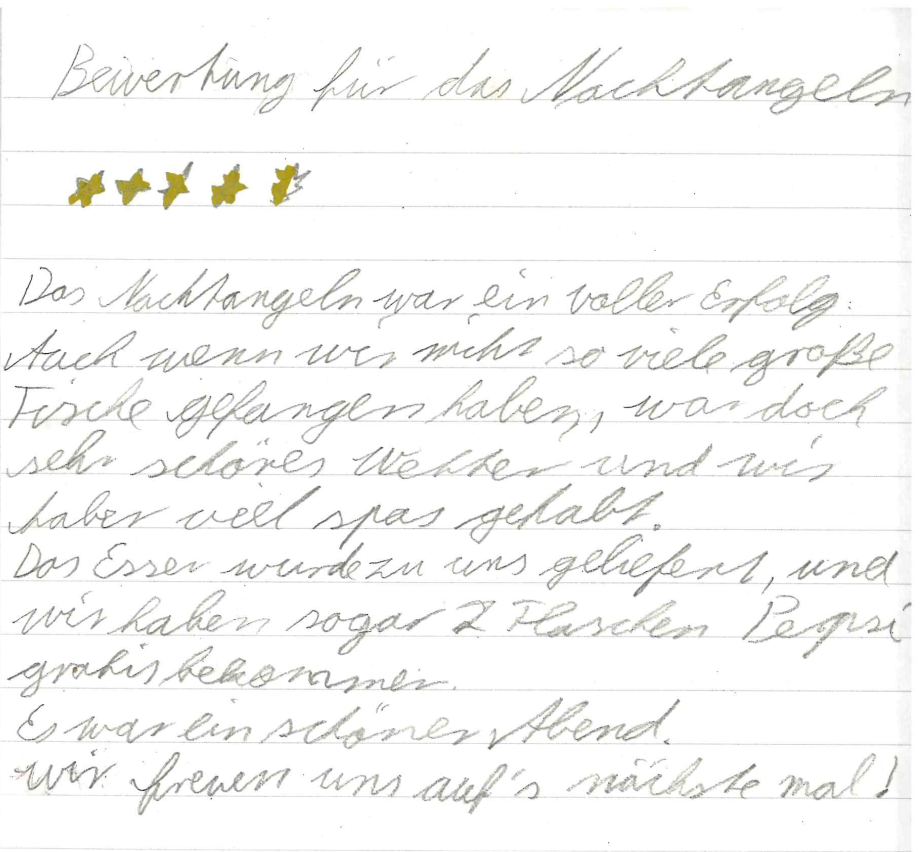 Bewertung für das Nachtangeln
Das Nachtangeln war ein voller Erfolg.
Auch wenn wir nicht so viele große
Fische gefangen haben, war doch
sehr schönes Wetter und wir
haben viel spas gehabt.
Das Essen wurde zu uns geliefert, und
wir haben sogar 2 Flaschen Pepsi
gratis bekommen.
Es war ein schöner Abend.
wir freuen uns auf's nächste mal!